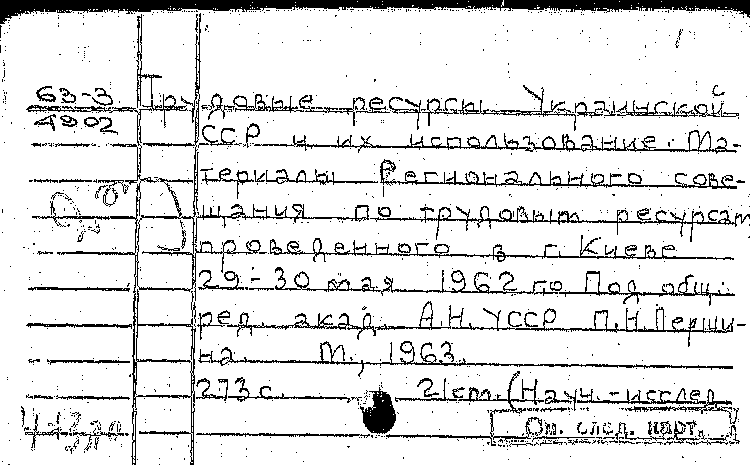 63-3 Трудовые ресурсы Украинской
4902
ССР и их использование. Ма-
териалы Регионального сове-
щания по трудовым ресурсам
проведенного в г. Киеве
29-30 мая 1962 го Под общ.
ред. акад. А.Н. УССР П.Н. Перши-
на. М., 1963.
273 с. 21 см. (Науч.-исслед
См. след. карт.